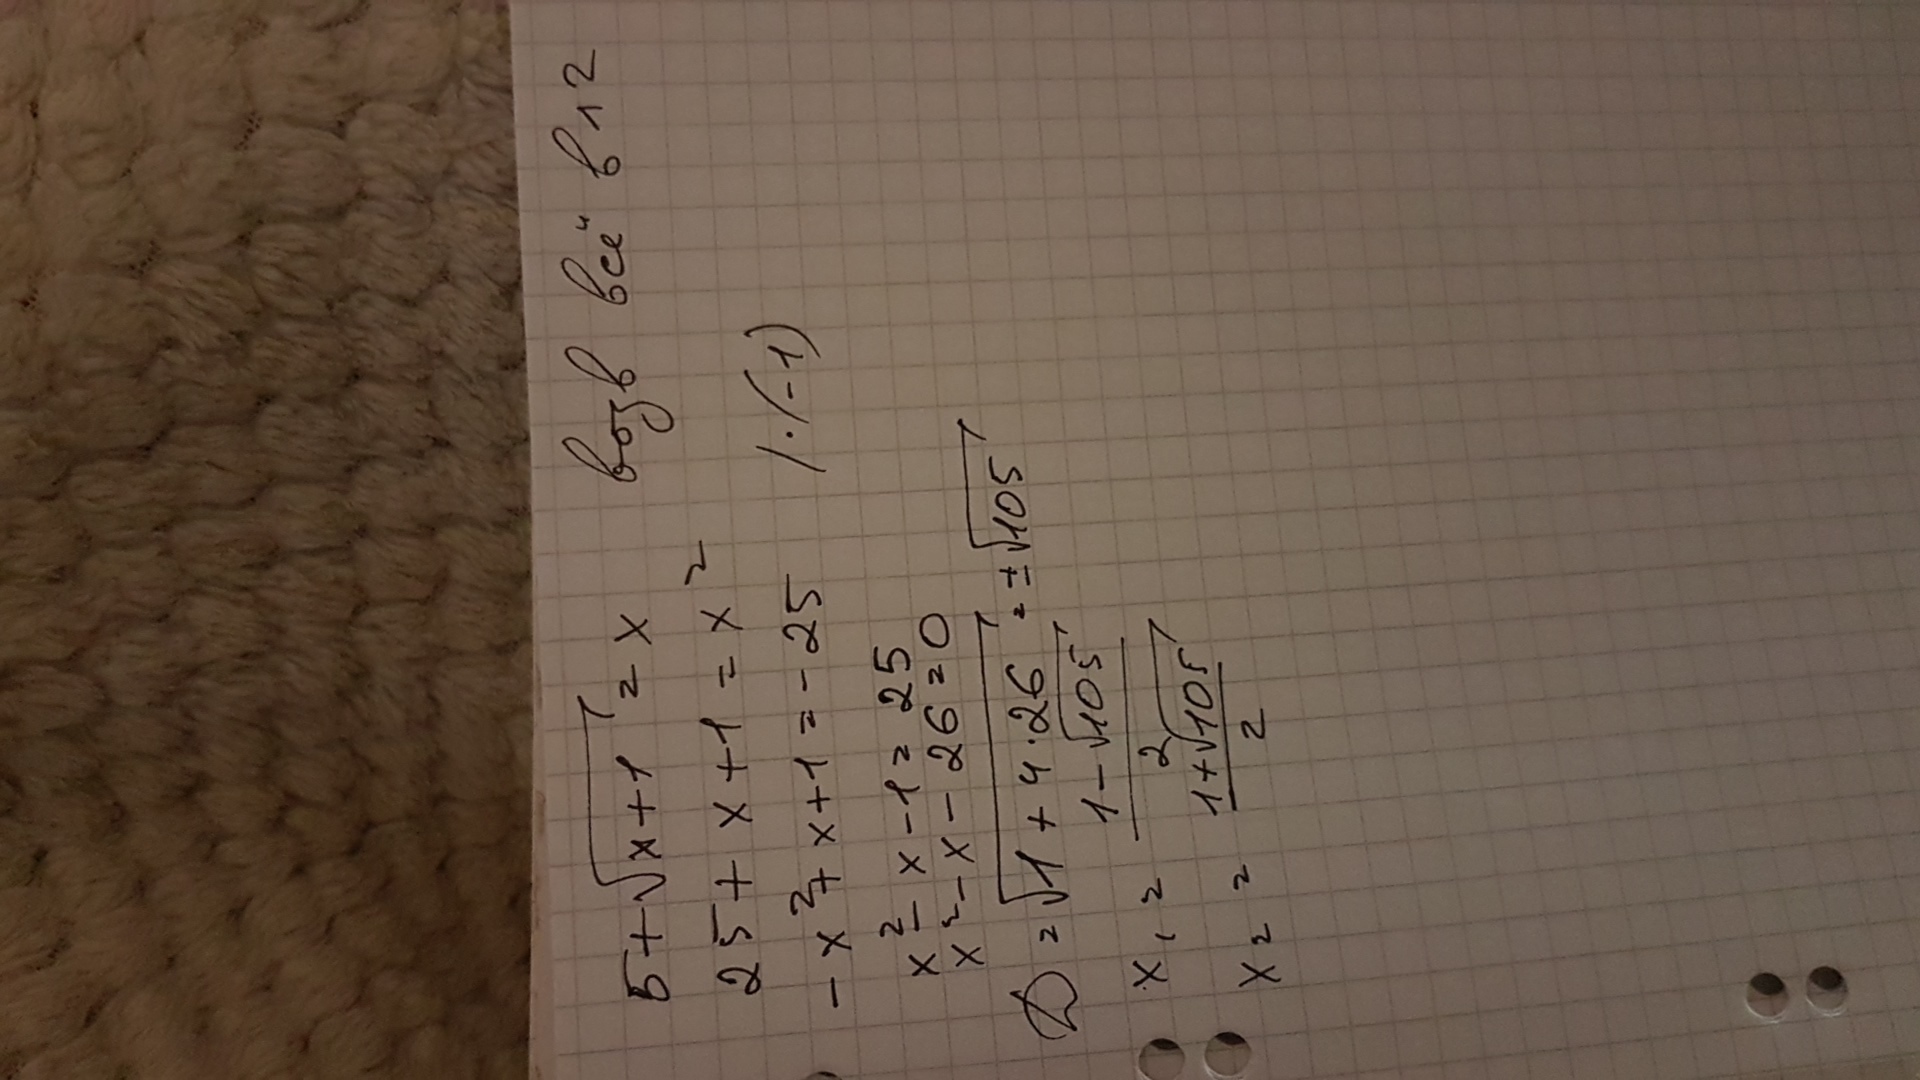 5+√x+1 = x возв всё в ^2
25+x+1=x²
-x²+x+1=-25 /·(-1)
x²-x-1=25
x²-x-26=0
D=√1+4·26 = ±√105
x₁ = 1-√105 / 2
x₂ = 1+√105 / 2